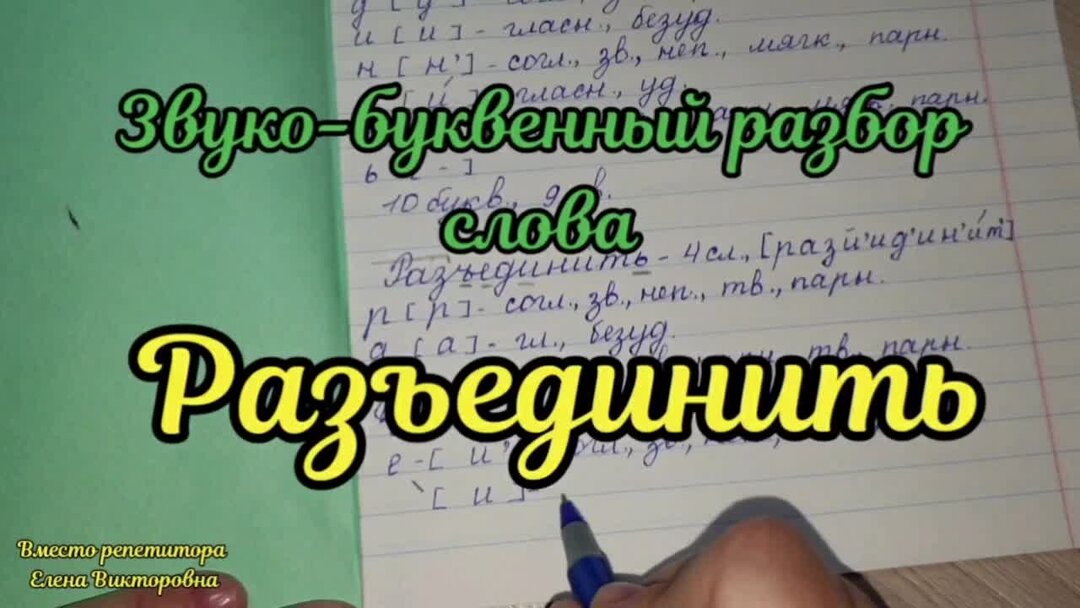 и [и] - гласн., безуд.
н [н'] - согл., зв., неп., мягк., парн.
[и́] гласн., уд.
парн.
Звуко-буквенный разбор
ь - ]
10 букв., 9
слова
Разъединить - 4 сл., [разй'ид'ин'и́т']
р [р] - согл., зв., неп., тв., парн.
а [а] - гл., безуд.
тв., парн.
Разъединить
е - [й'
[и]
Вместо репетитора
Елена Викторовна